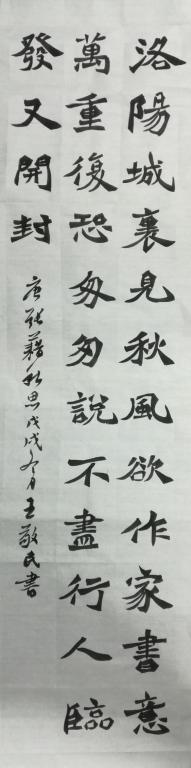 洛陽城裏見秋風欲作家書意
萬重復恐匆匆說不盡行人臨
發又開封
唐張籍秋思戊戌冬月王敬民書